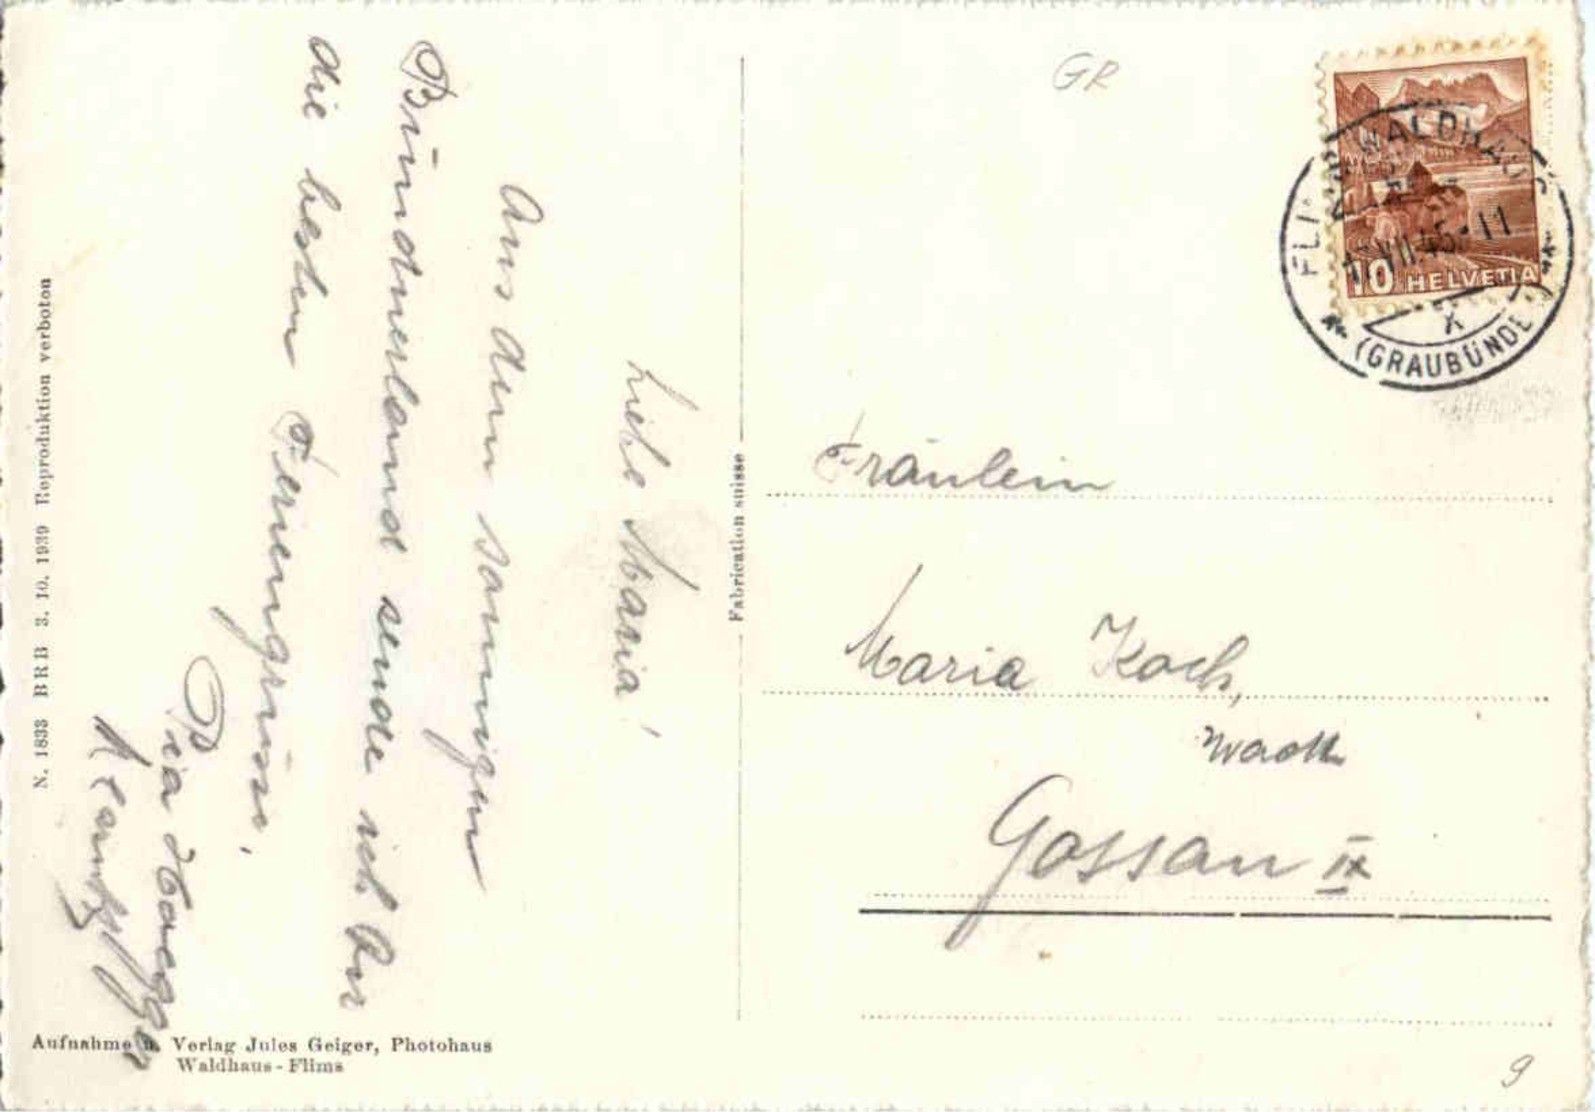 Liebe Maria!
Aus dem sonnigen
Bündnerland sende ich Dir
die besten Feriengrüsse.
Pia
N. 1833 BRB 3. 10. 1939 Reproduktion verboten
Aufnahme u. Verlag Jules Geiger, Photohaus
Waldhaus - Flims
Fabrication suisse
GR
FLIMS WALDHAUS
VII.45-11
X
(GRAUBÜNDEN)
10 HELVETIA
Fräulein
Maria Koch,
Gossau
9